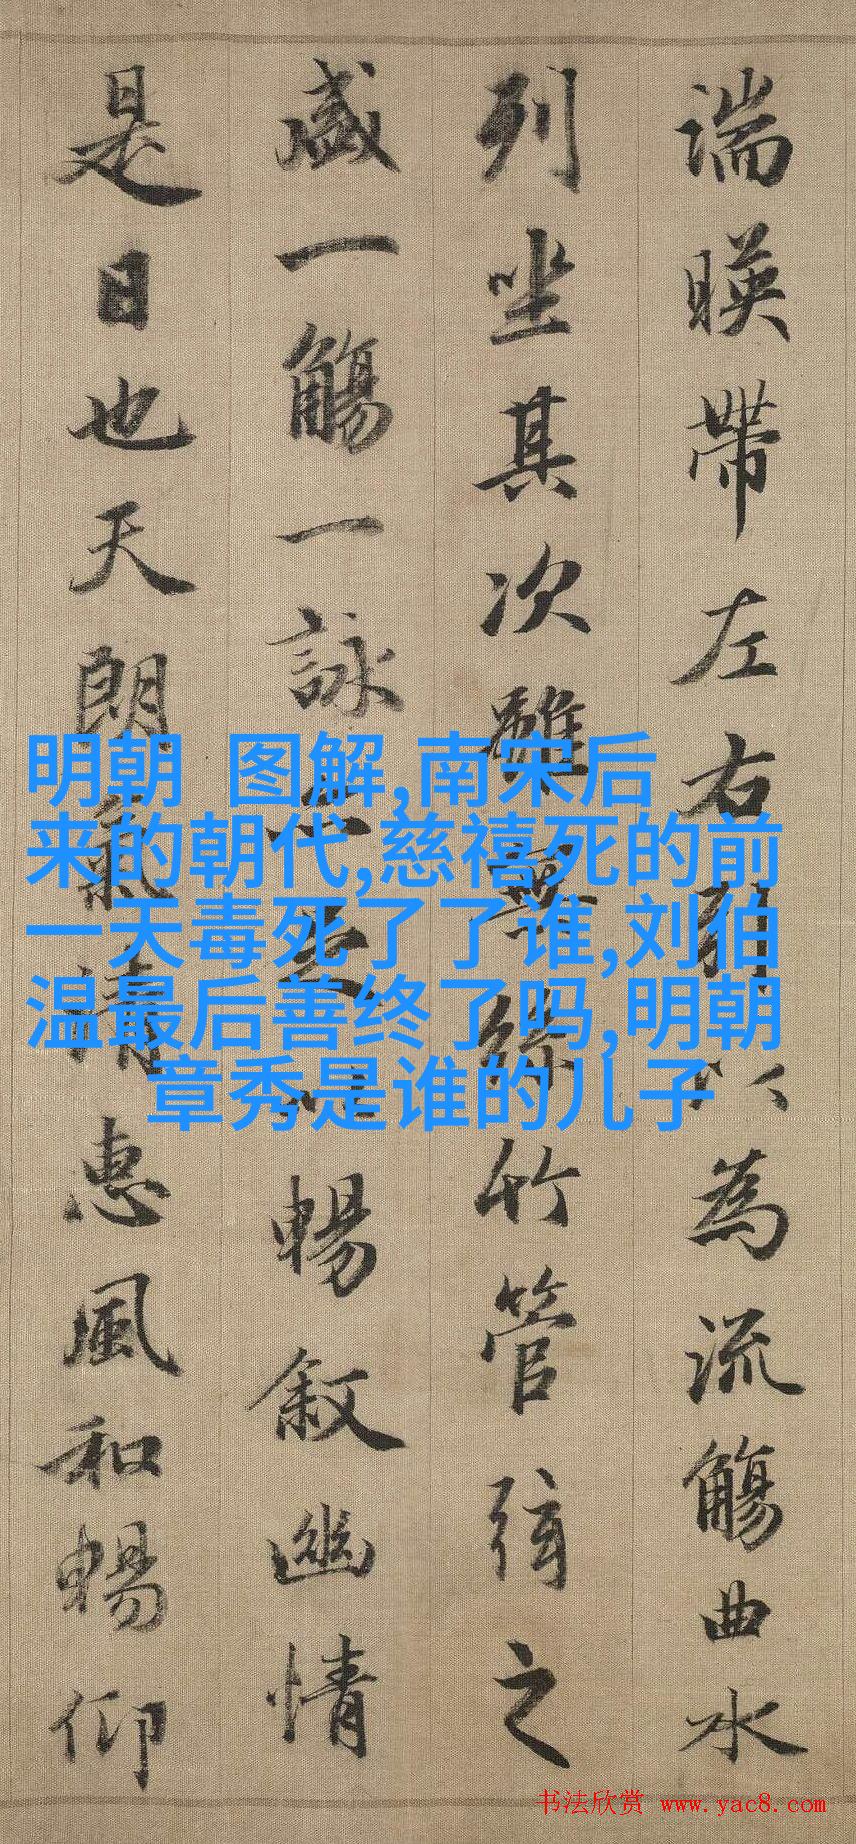 湍暎帶左右引以為流觴曲水
列坐其次雖無絲竹管弦之
盛一觴一詠亦足以暢敘幽情
是日也天朗氣清惠風和暢仰
明朝 图解,南宋后
来的朝代,慈禧死的前
一天毒死了了谁,刘伯
温最后善终了吗,明朝
章秀是谁的儿子
书法欣赏 www.yac8.com